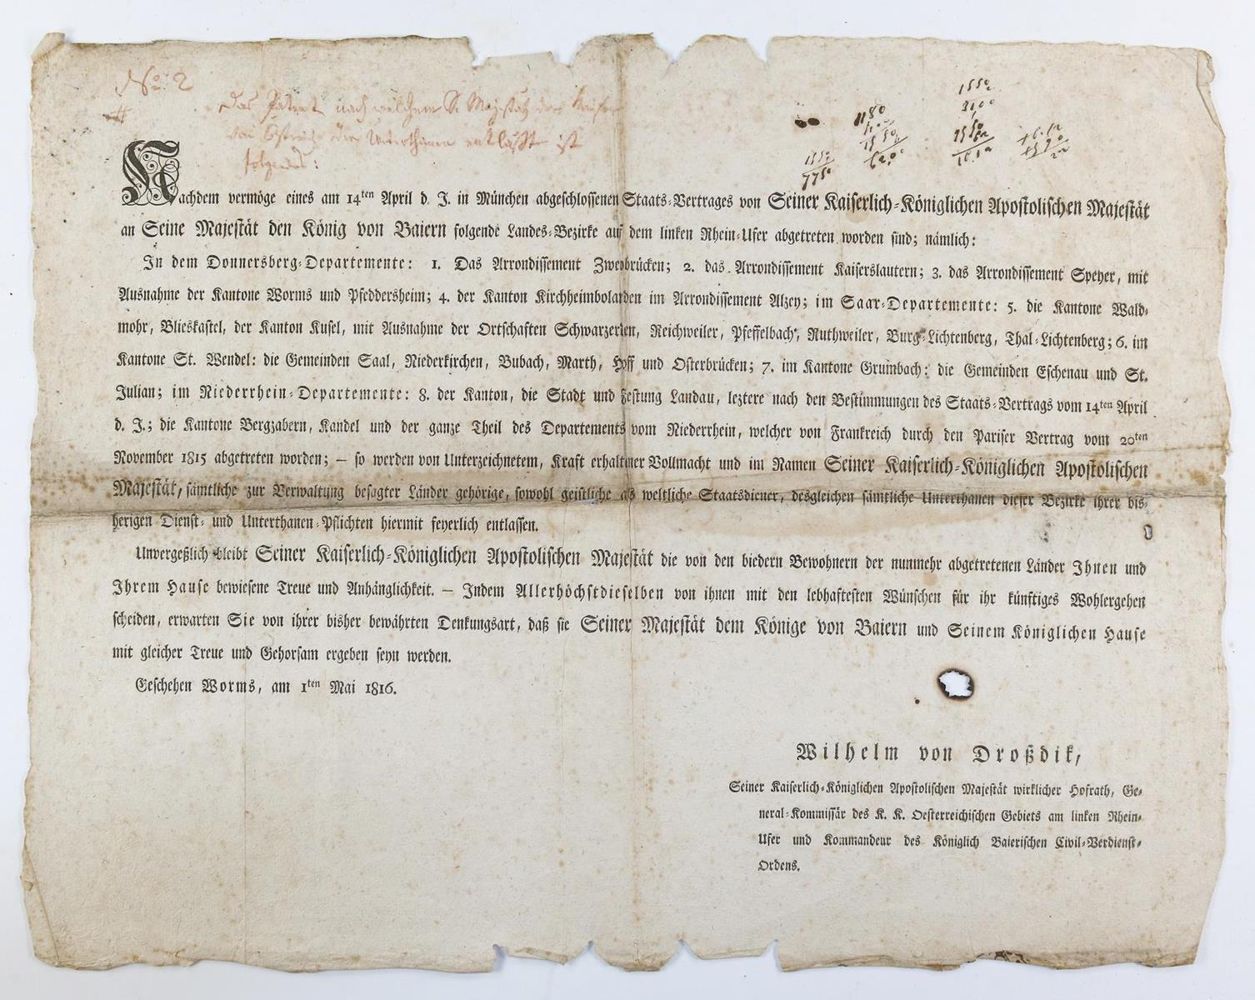 No: 2
Das Patent nach welchem Sr. Majestät der Kaiser
von Östreich die Unterthanen entläßt ist
folgendes:
1180
1550
775
Nachdem vermöge eines am 14ten April d. J. in München abgeschlossenen Staats-Vertrages von Seiner Kaiserlich-Königlichen Apostolischen Majestät
an Seine Majestät den König von Baiern folgende Landes-Bezirke auf dem linken Rhein-Ufer abgetreten worden sind; nämlich:
In dem Donnersberg-Departemente: 1. Das Arrondissement Zweybrücken; 2. das Arrondissement Kaiserslautern; 3. das Arrondissement Speyer, mit
Ausnahme der Kantone Worms und Pfeddersheim; 4. der Kanton Kirchheimbolanden im Arrondissement Alzey; im Saar-Departemente: 5. die Kantone Wald-
mohr, Blieskastel, der Kanton Kusel, mit Ausnahme der Ortschaften Schwarzerden, Reichweiler, Pfeffelbach, Ruthweiler, Burg-Lichtenberg, Thal-Lichtenberg; 6. im
Kantone St. Wendel: die Gemeinden Saal, Niederkirchen, Bubach, Marth, Hoff und Osterbrücken; 7. im Kantone Grumbach: die Gemeinden Eschenau und St.
Julian; im Niederrhein-Departemente: 8. der Kanton, die Stadt und Festung Landau, leztere nach den Bestimmungen des Staats-Vertrags vom 14ten April
d. J.; die Kantone Bergzabern, Kandel und der ganze Theil des Departements vom Niederrhein, welcher von Frankreich durch den Pariser Vertrag vom 20ten
November 1815 abgetreten worden; — so werden von Unterzeichnetem, Kraft erhaltener Vollmacht und im Namen Seiner Kaiserlich-Königlichen Apostolischen
Majestät, sämtliche zur Verwaltung besagter Länder gehörige, sowohl geistliche als weltliche Staatsdiener, desgleichen sämtliche Unterthanen dieser Bezirke ihrer bis-
herigen Dienst- und Unterthanen-Pflichten hiermit feyerlich entlassen.
Unvergeßlich bleibt Seiner Kaiserlich-Königlichen Apostolischen Majestät die von den biedern Bewohnern der nunmehr abgetretenen Länder Ihnen und
Ihrem Hause bewiesene Treue und Anhänglichkeit. — Indem Allerhöchstdieselben von ihnen mit den lebhaftesten Wünschen für ihr künftiges Wohlergehen
scheiden, erwarten Sie von ihrer bisher bewährten Denkungsart, daß sie Seiner Majestät dem Könige von Baiern und Seinem Königlichen Hause
mit gleicher Treue und Gehorsam ergeben seyn werden.
Geschehen Worms, am 1ten Mai 1816.
Wilhelm von Droßdik,
Seiner Kaiserlich-Königlichen Apostolischen Majestät wirklicher Hofrath, Ge-
neral-Kommissär des K. K. Oesterreichischen Gebiets am linken Rhein-
Ufer und Kommandeur des Königlich Baierischen Civil-Verdienst-
Ordens.